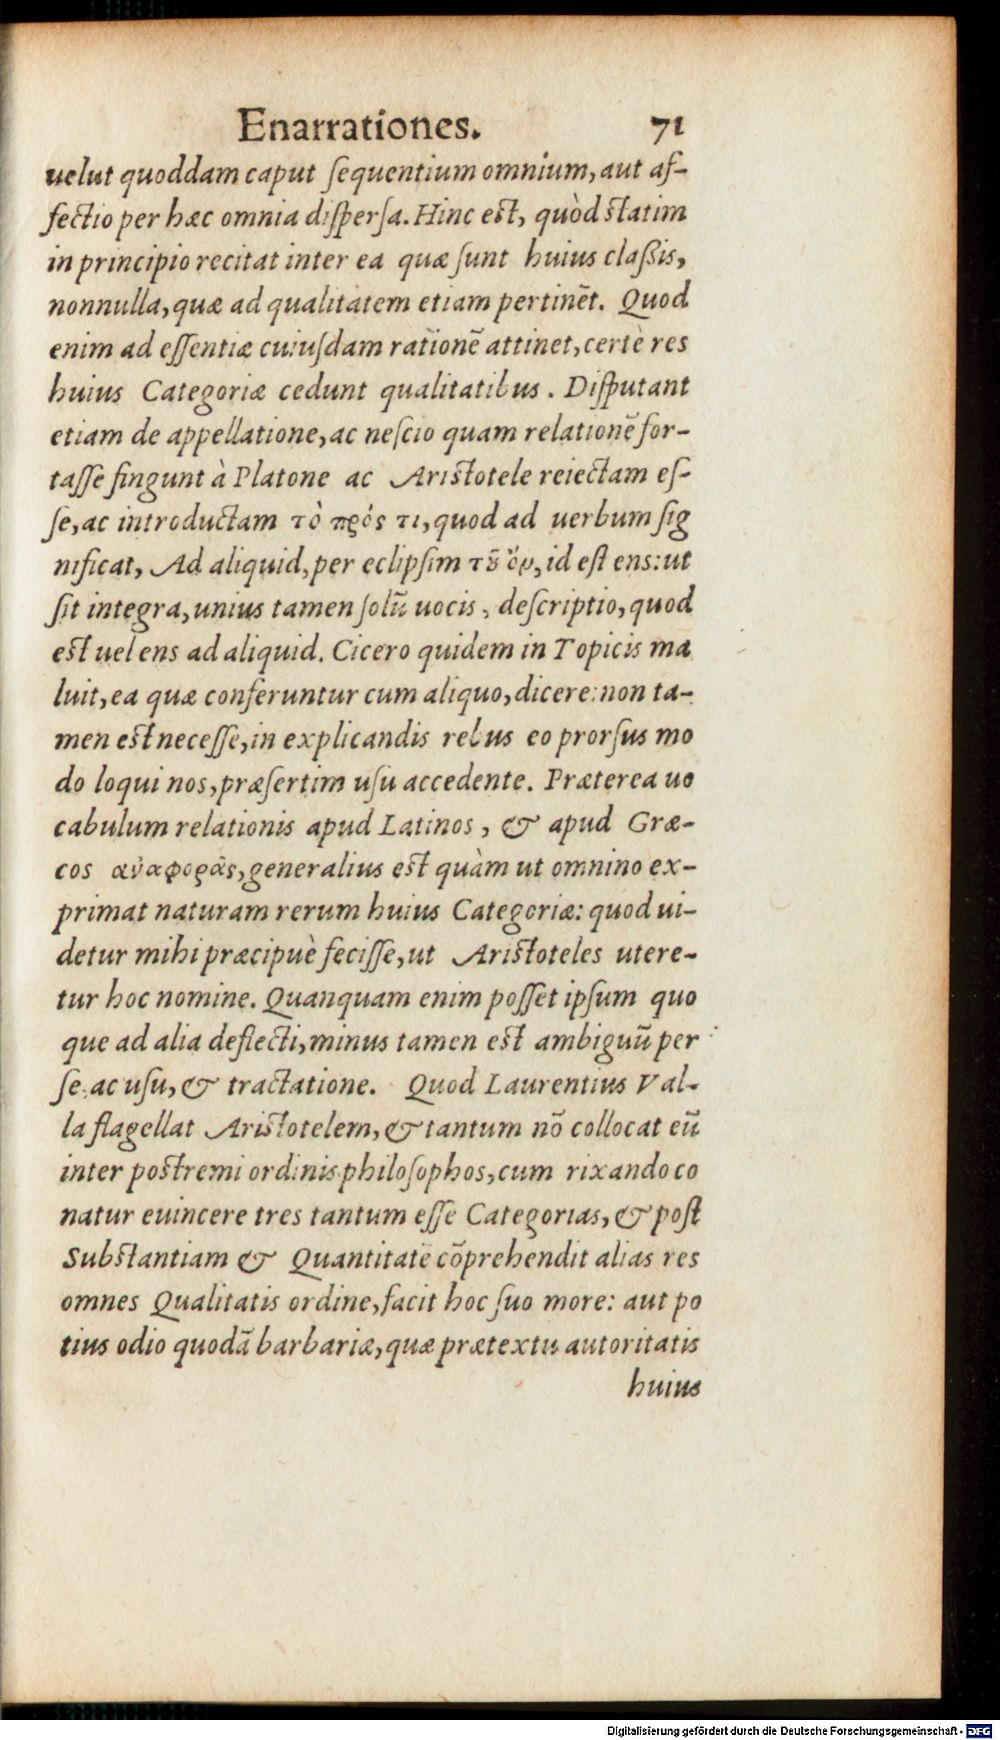 Enarrationes. 71
uelut quoddam caput ſequentium omnium, aut af-
fectio per hæc omnia diſperſa. Hinc est, quòd statim
in principio recitat inter ea quæ ſunt huius claßis,
nonnulla, quæ ad qualitatem etiam pertinēt. Quod
enim ad eſſentiæ cuiuſdam rationē attinet, certè res
huius Categoriæ cedunt qualitatibus. Diſputant
etiam de appellatione, ac neſcio quam relationē for-
taſſe fingunt à Platone ac Aristotele reiectam eſ-
ſe, ac introductam τὸ πρός τι, quod ad uerbum ſig
nificat, Ad aliquid, per eclipſim τȣ͂ ὄν, id eſt ens: ut
ſit integra, unius tamen ſolū uocis, deſcriptio, quod
est uel ens ad aliquid. Cicero quidem in Topicis ma
luit, ea quæ conferuntur cum aliquo, dicere: non ta-
men est neceſſe, in explicandis rebus eo prorſus mo
do loqui nos, præſertim uſu accedente. Præterea uo
cabulum relationis apud Latinos, & apud Græ-
cos ανἀφορᾶς, generalius est quàm ut omnino ex-
primat naturam rerum huius Categoriæ: quod ui-
detur mihi præcipuè feciſſe, ut Aristoteles utere-
tur hoc nomine. Quanquam enim poſſet ipſum quo
que ad alia deflecti, minus tamen est ambiguū per
ſe ac uſu, & tractatione. Quod Laurentius Val-
la flagellat Aristotelem, & tantum nō collocat eū
inter postremi ordinis philoſophos, cum rixando co
natur euincere tres tantum eſſe Categorias, & poſt
Substantiam & Quantitatē cōprehendit alias res
omnes Qualitatis ordine, facit hoc ſuo more: aut po
tius odio quodā barbariæ, quæ prætextu autoritatis
huius
Digitalisierung gefördert durch die Deutsche Forschungsgemeinschaft - DFG